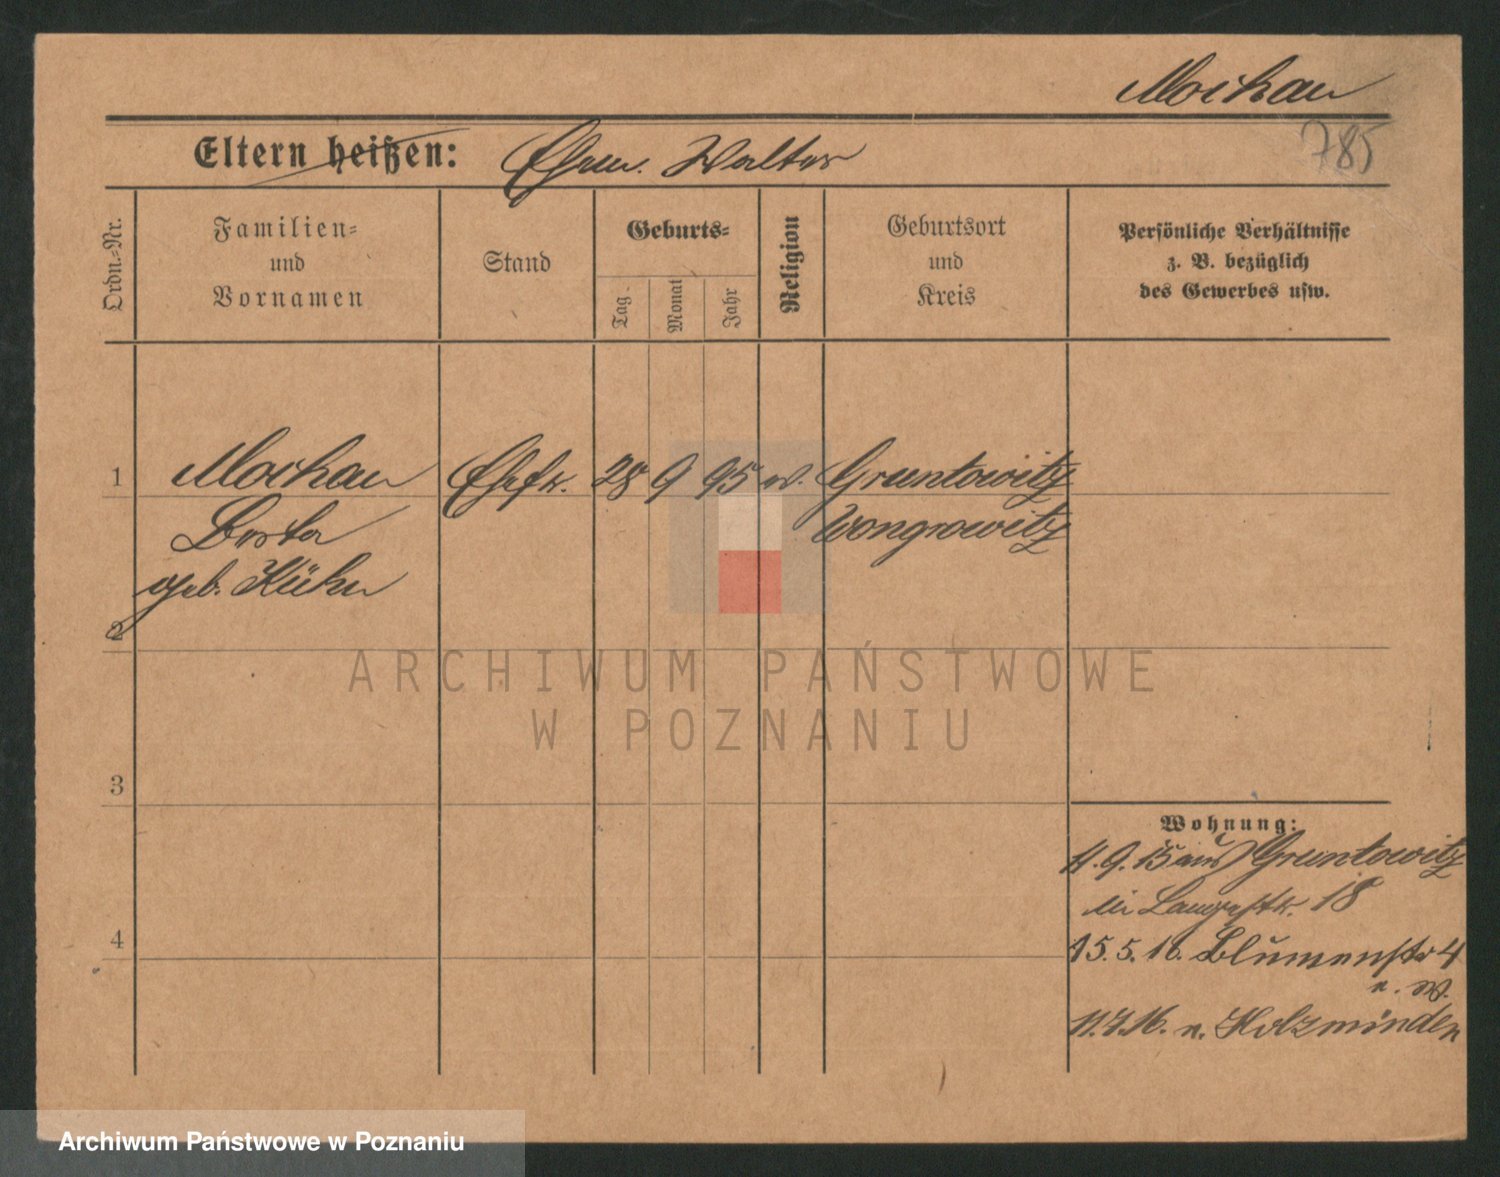 Mochau
785
Eltern heißen: Ehem. Walter
Ordn.-Nr.
Familien-
und
Vornamen
Stand
Geburts-
Tag.
Monat
Jahr
Religion
Geburtsort
und
Kreis
Persönliche Verhältnisse
z. B. bezüglich
des Gewerbes usw.
1 Mochau Ehefr. 28 9 95 Gruntowitz
Berta Wongrowitz
geb. Kühn
2
3
4
Wohnung:
11.9.15 aus Gruntowitz
Langestr. 18
15.5.16. Blumenstr 4
11.7.16. n. Holzminden
ARCHIWUM PAŃSTWOWE
W POZNANIU
Archiwum Państwowe w Poznaniu